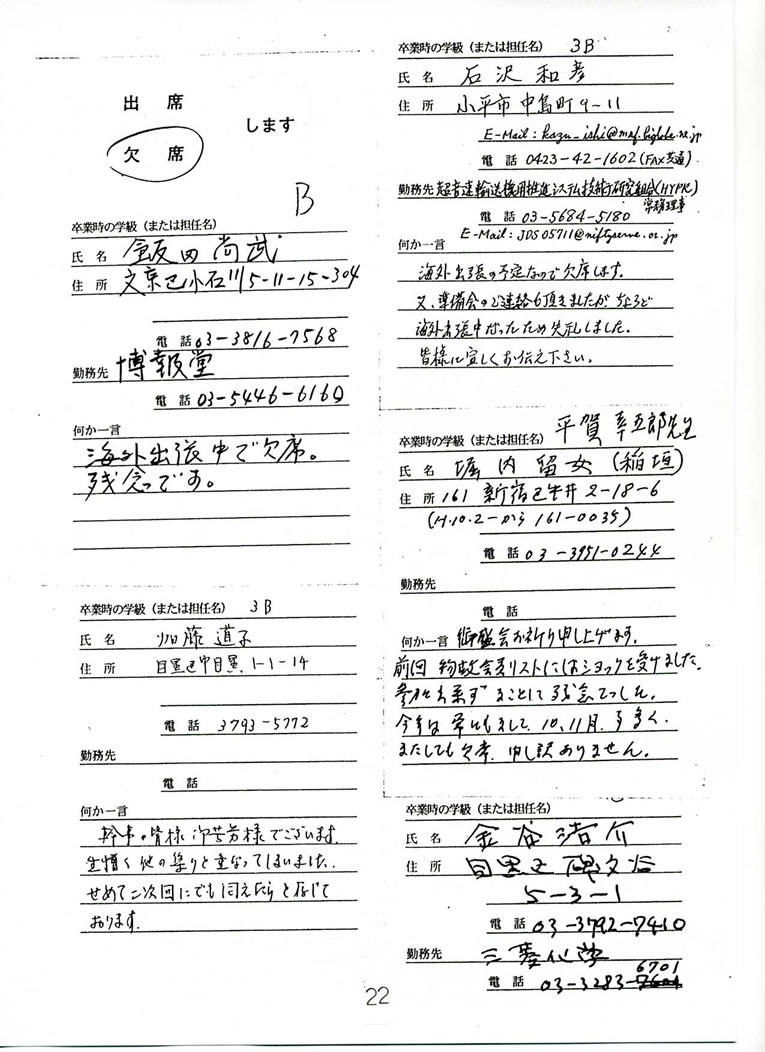 出 席
します
欠 席
B
卒業時の学級（または担任名）
氏 名 飯田尚武
住 所 文京区小石川5-11-15-304
電 話 03-3816-7568
勤務先 博報堂
電 話 03-5446-6160
何か一言
海外出張中で欠席。
残念です。
卒業時の学級（または担任名） 3B
氏 名 加藤 道子
住 所 目黒区中目黒 1-1-14
電 話 3793-5772
勤務先
電 話
何か一言
幹事の皆様 御苦労様でございます.
生憎く他の集りと重なってしまいました.
せめて二次回にでも伺えたらと存じて
おります.
卒業時の学級（または担任名） 3B
氏 名 石沢 和彦
住 所 小平市中島町9-11
E-Mail: kazu_ishi@
電 話 0423-42-1602(FAX共通)
勤務先 超音速輸送機用推進システム技術研究組合(HYPR)
常務理事
電 話 03-5684-5180
E-Mail: JDS05711@niftyserve.or.jp
何か一言
海外出張の予定なので欠席します。
又、準備会のご連絡も頂きましたが ちょうど
海外出張中だったため失礼しました。
皆様に宜しくお伝え下さい。
卒業時の学級（または担任名） 平賀 幸五郎先生
氏 名 堀内留女(稲垣)
住 所 161 新宿区 2-18-6
(H.10.2-から 161-0035)
電 話 03-3951-0244
勤務先
電 話
何か一言 御盛会お祈り申し上げます.
前回 物故会員リストにはショックを受けました.
参加出来ず まことに残念でした.
今年は 10、11月.
またしても欠席. 申し訳ありません。
卒業時の学級（または担任名）
氏 名 金谷 介
住 所 目黒区碑文谷
5-3-1
電 話 03-3792-7410
勤務先 三菱化学
6701
電 話 03-3283-
22